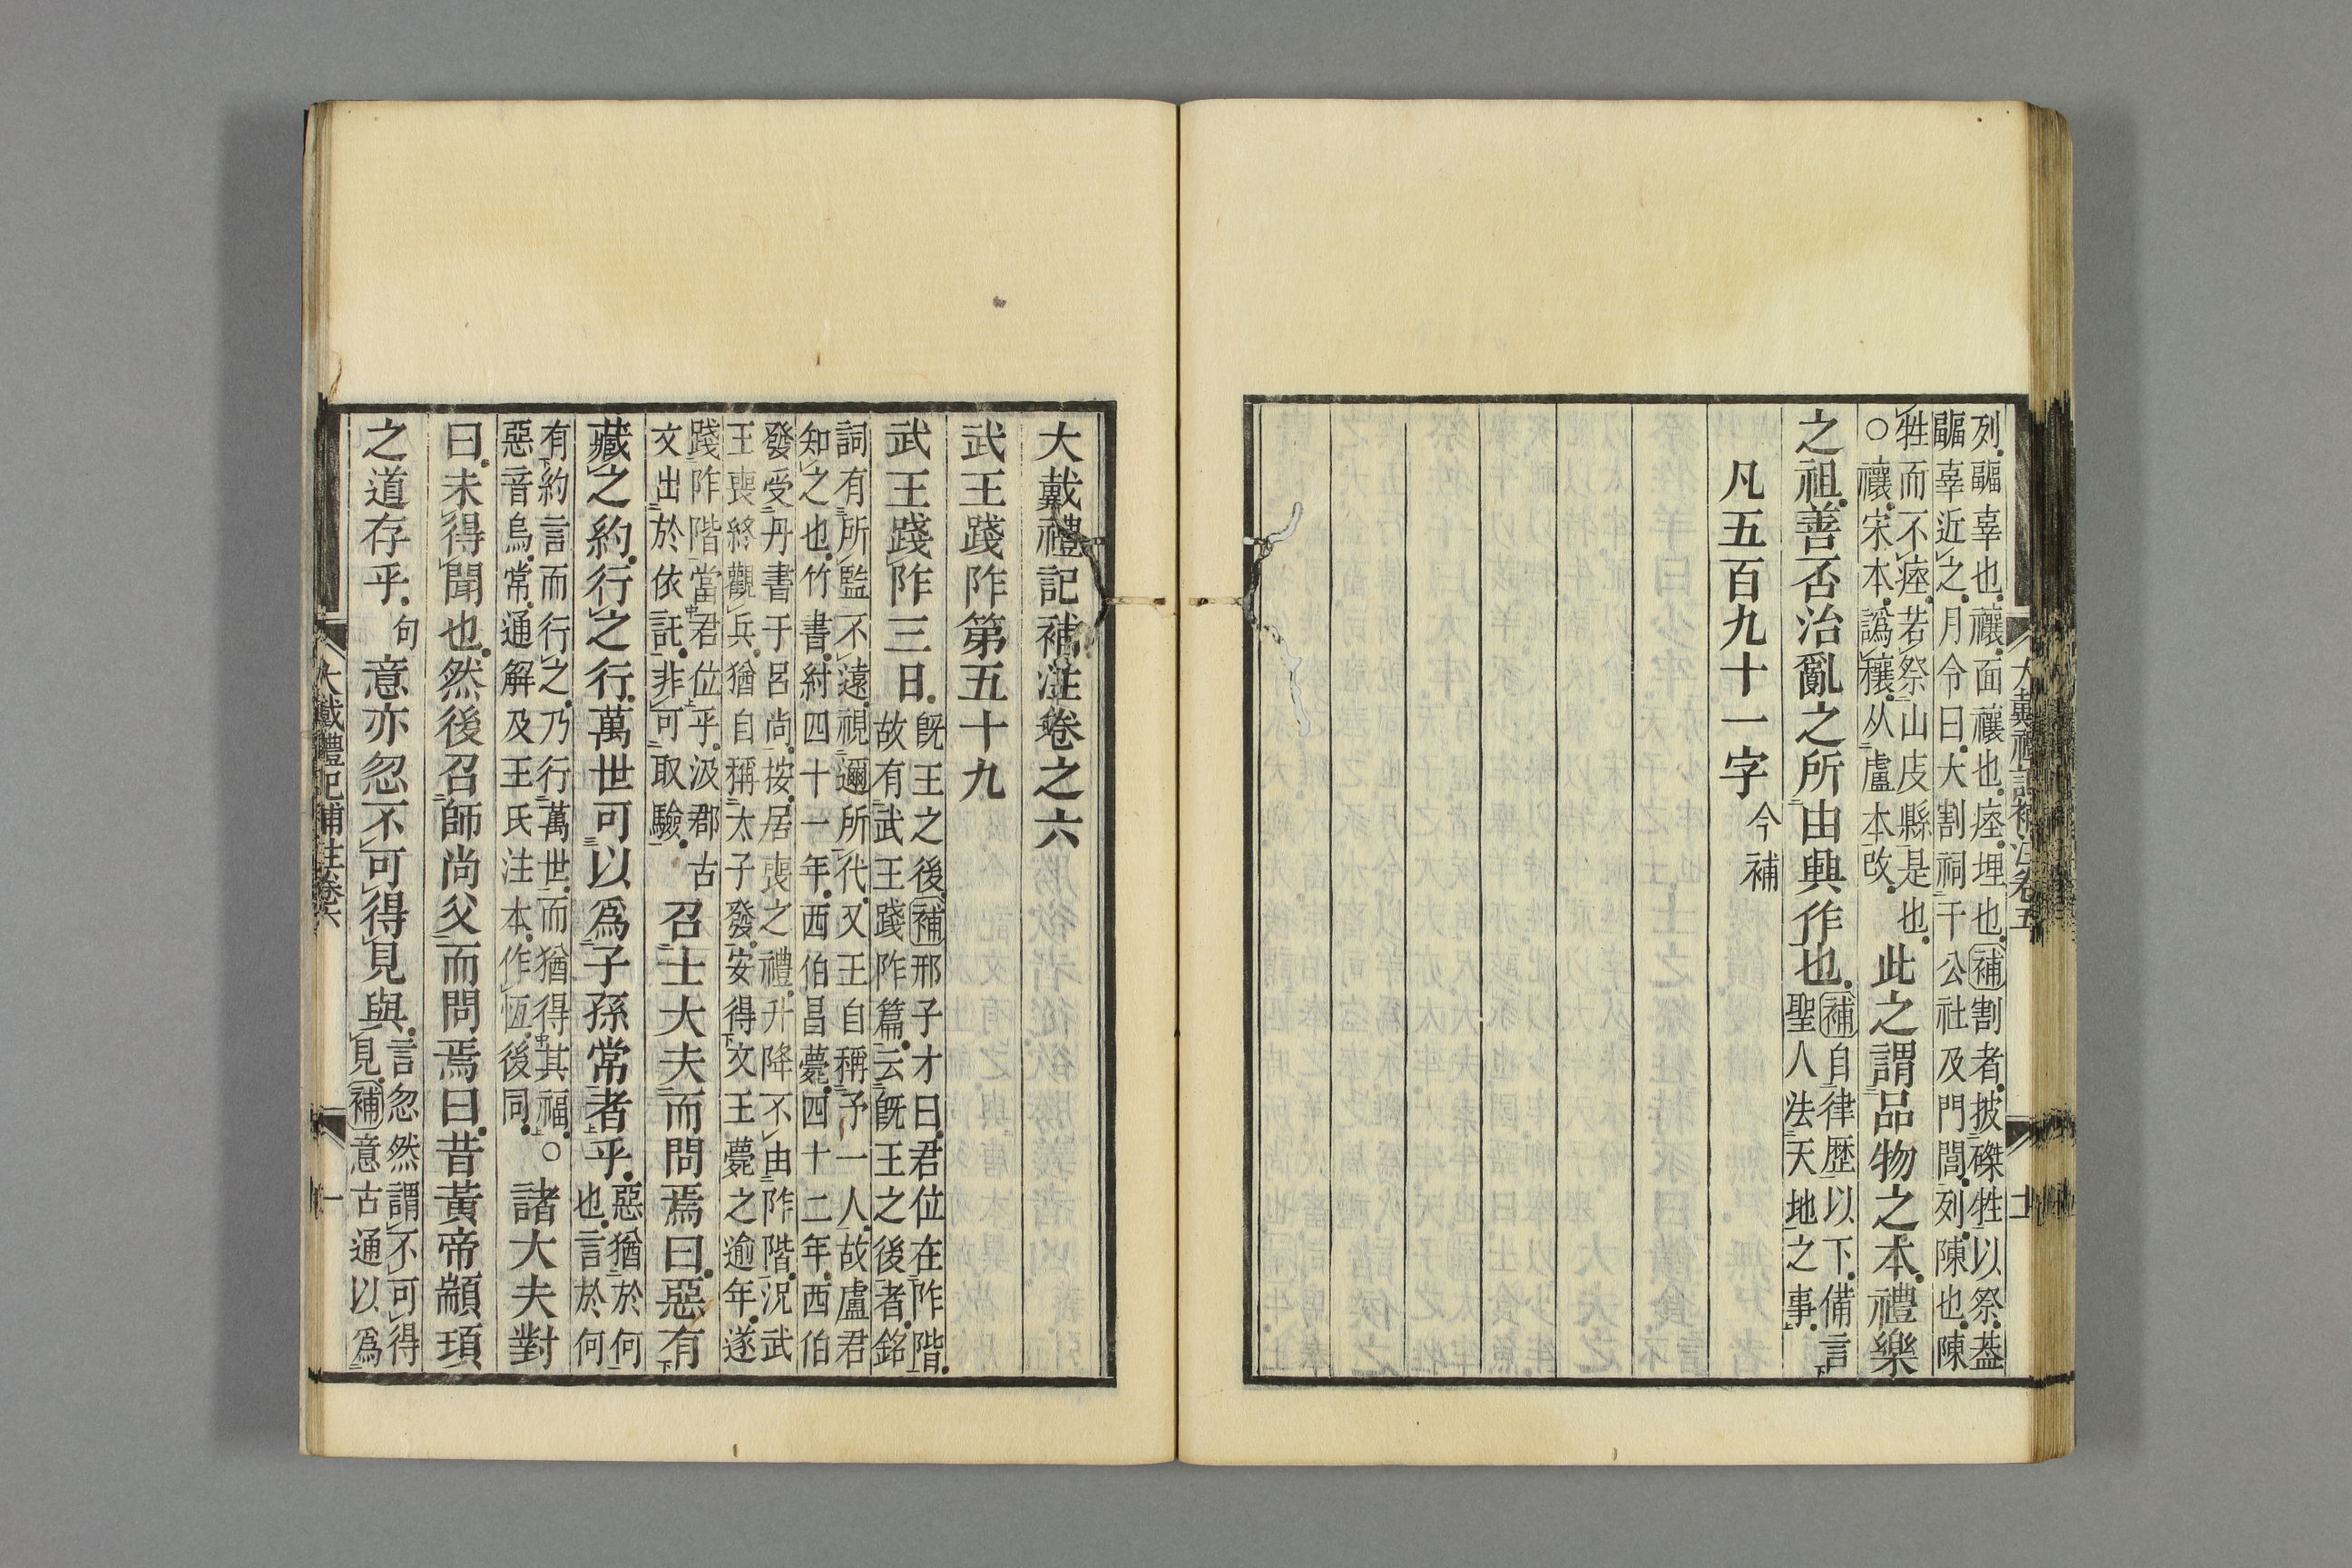 大戴禮記補注卷五
十一
列疈辜也禳面禳也瘞埋也補割者披磔牲以祭葢
疈辜近之月令曰大割祠于公社及門閭列陳也陳
牲而不瘞若祭山庋縣是也
○禳宋本譌穰从盧本改
此之謂品物之本禮樂
之祖善否治亂之所由興作也
補自律歴以下備言
聖人法天地之事
凡五百九十一字今補
大戴禮記補注卷之六
武王踐阼第五十九
武王踐阼三日
既王之後補邢子才曰君位在阼階
故有武王踐阼篇云既王之後者銘
詞有所監不遠視邇所代又王自稱予一人故盧君
知之也竹書紂四十一年西伯昌薨四十二年西伯
發受丹書于呂尚按居喪之禮升降不由阼階況武
王喪終觀兵猶自稱太子發安得文王薨之逾年遂
踐阼階當君位乎汲郡古
文出於依託非可取驗
召士大夫而問焉曰惡有
藏之約行之行萬世可以爲子孫常者乎
惡猶於何
也言於何
有約言而行之乃行萬世而猶得其福○
惡音烏常通解及王氏注本作恆後同
諸大夫對
曰未得聞也然後召師尚父而問焉曰昔黃帝顓頊
之道存乎句意亦忽不可得見與
言忽然謂不可得
見補意古通以爲
大戴禮記補注卷六
一